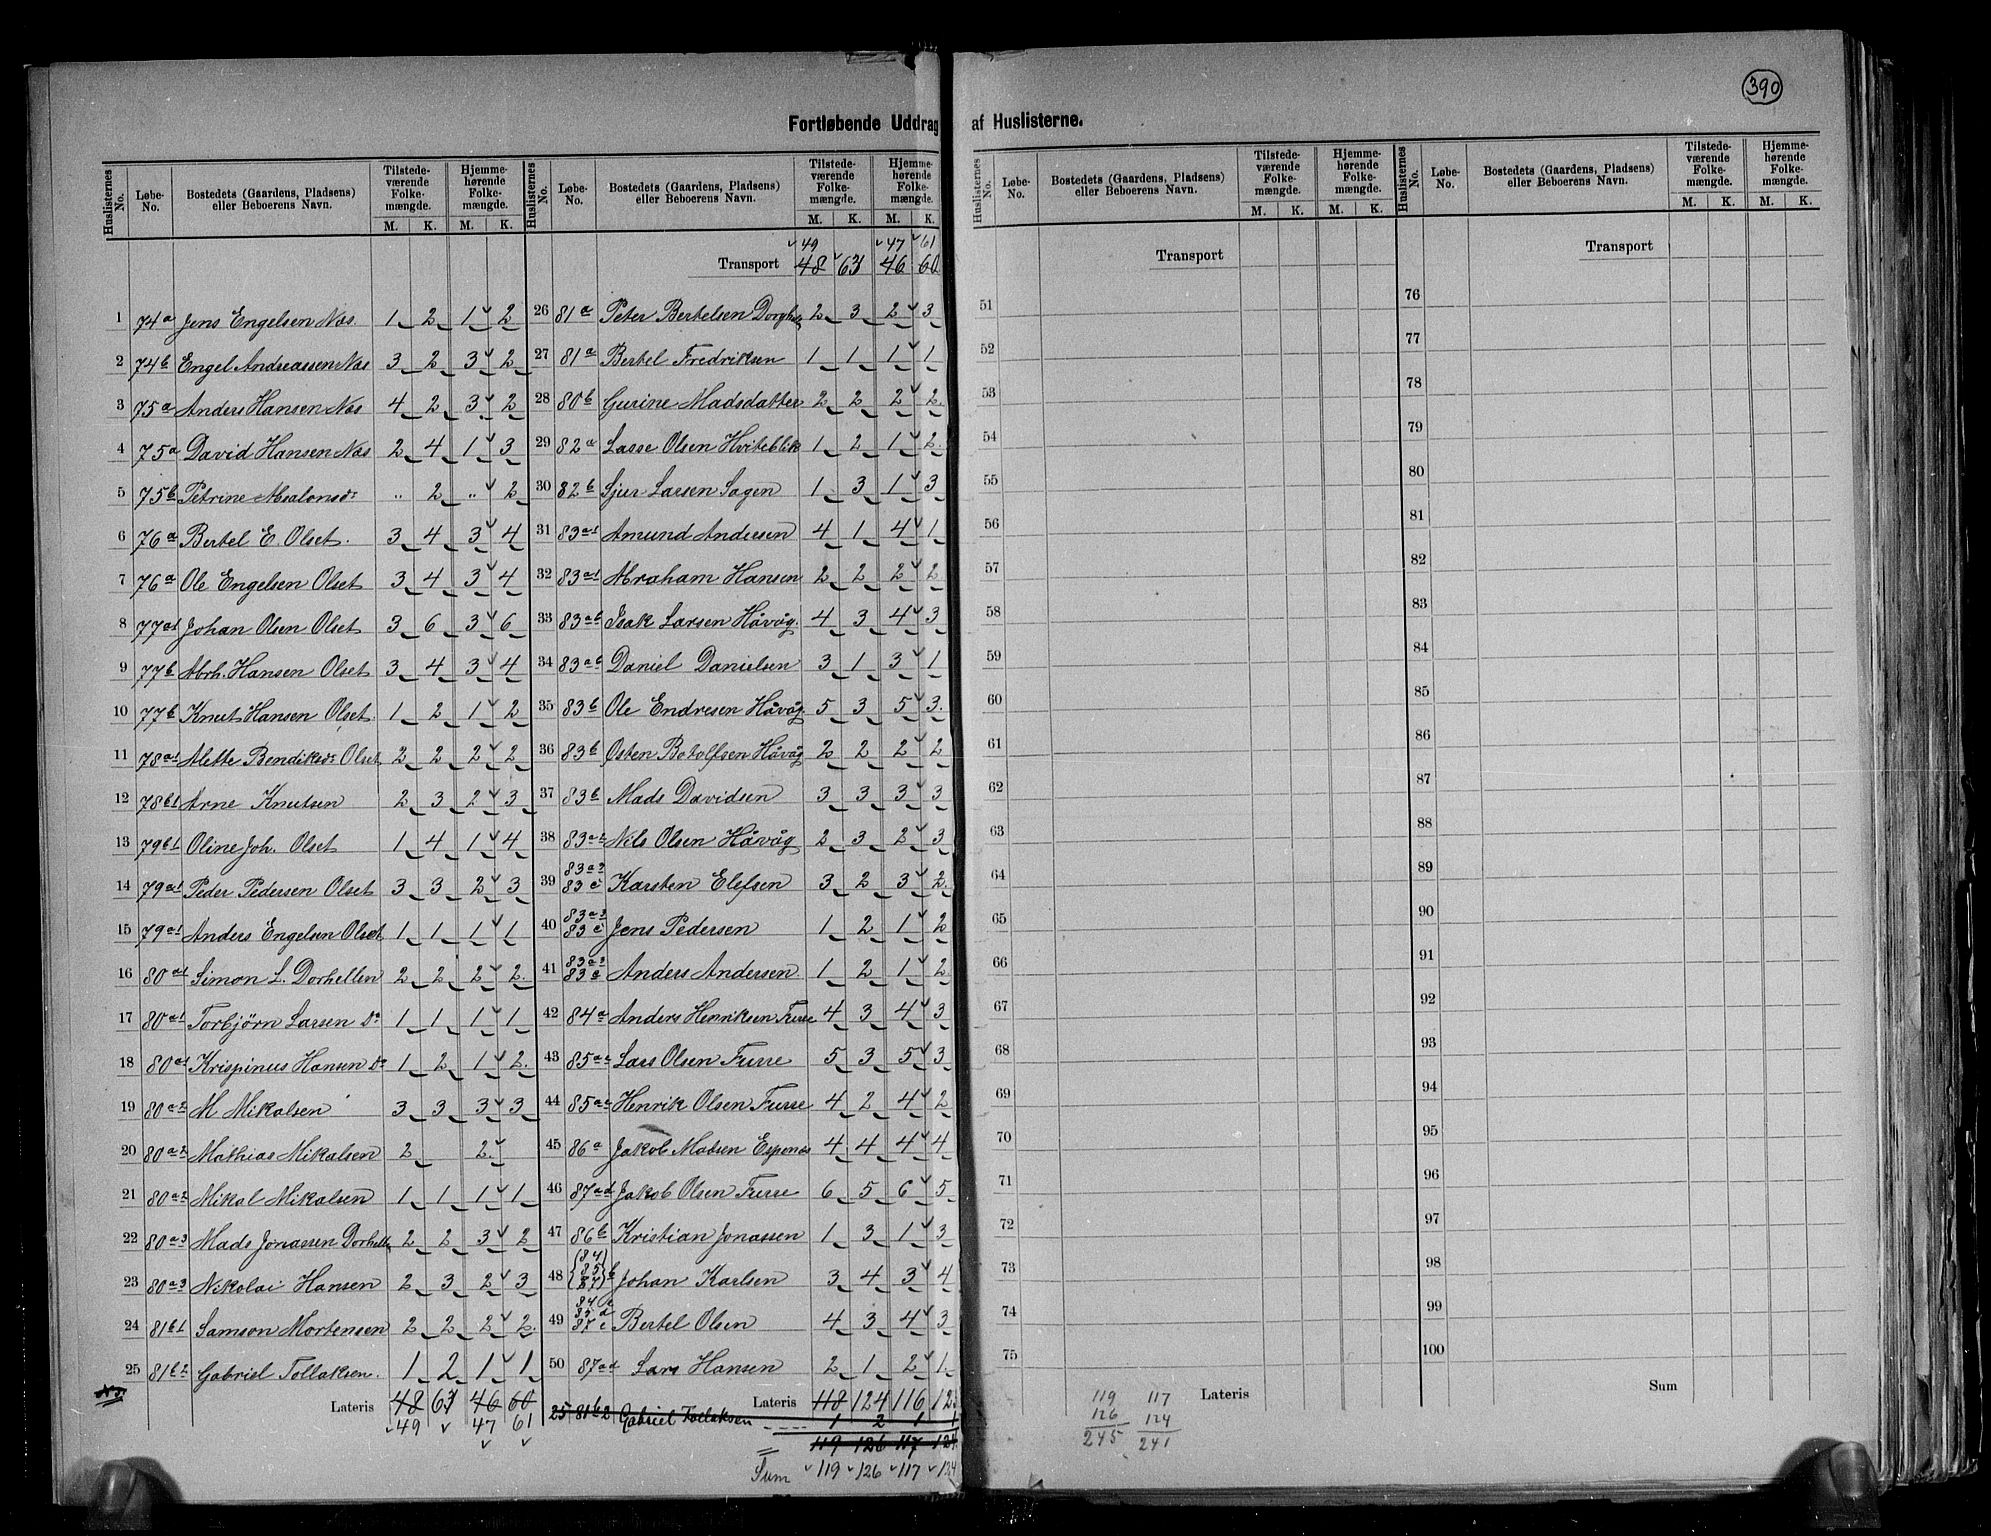 390
Fortløbende Uddrag af Huslisterne.
Huslisternes No. Løbe-No. Bostedets (Gaardens, Pladsens) eller Beboerens Navn. Tilstede-værende Folke-mængde. M. K. Hjemme-hørende Folke-mængde. M. K.
1 74a Jens Engelsen Næs. 1 2 1 2
2 74b Engel Andreassen Næs 3 2 3 2
3 75a Anders Hansen Næs 4 2 3 2
4 75a David Hansen Næs 2 4 1 3
5 75b Petrine Absalonsdr „ 2 „ 2
6 76a Bertel E. Olset. 3 4 3 4
7 76a Ole Engelsen Olset 3 4 3 4
8 77a1 Johan Olsen Olset 3 6 3 6
9 77b Abrh. Hansen Olset 3 4 3 4
10 77b Knut Hansen Olset. 1 2 1 2
11 78a1 Alette Bendiksdr Olset 2 2 2 2
12 78b1 Arne Knutsen 2 3 2 3
13 79b1 Oline Joh. Olset 1 4 1 4
14 79a1 Peder Pedersen Olset 3 3 2 3
15 79a1 Anders Engelsen Olset 1 1 1 1
16 80a1 Simon L. Dorhellen 2 2 2 2
17 80a1 Torbjörn Larsen Do 1 1 1 1
18 80a1 Krispinus Hansen Do 1 2 1 2
19 80a2 M Mikalsen 3 3 3 3
20 80a2 Mathias Mikalsen 2 2
21 80a2 Mikal Mikalsen 1 1 1 1
22 80a3 Mads Jonassen Dorhelle 2 2 3 2
23 80a3 Nikolai Hansen 2 3 2 3
24 81b1 Samson Mortensen 2 2 2 2
25 81b2 Gabriel Tollaksen. 1 2 1 1
Lateris 48 63 46 60
49 47 61
Huslisternes No. Løbe-No. Bostedets (Gaardens, Pladsens) eller Beboerens Navn. Tilstede-værende Folke-mængde. M. K. Hjemme-hørende Folke-mængde. M. K.
49 47 61
Transport 48 63 46 60
26 81a Peter Bertelsen 2 3 2 3
27 81a Bertel Fredriksen 1 1 1 1
28 80b Gurine Madsdatter 2 2 2 2
29 82a Lasse Olsen Hviteblik 1 2 1 2
30 82b Sjur Larsen Sagen 1 3 1 3
31 83a1 Amund Andersen 4 1 4 1
32 83a1 Abraham Hansen 2 2 2 2
33 83a6 Isak Larsen Håvåg. 4 3 4 3
34 83a6 Daniel Danielsen 3 1 3 1
35 83b Ole Endresen Håvåg 5 3 5 3
36 83b Osten Botolfsen Håvåg 2 2 2 2
37 83b Mads Davidsen 3 3 3 3
38 83a2 Nils Olsen Håvåg 2 3 2 3
39 83a3 83c Karsten Elefsen 3 2 3 2
40 83a3 83c Jens Pedersen 1 2 1 2
41 83a3 83c Anders Andersen 1 2 1 2
42 84a Anders Henriksen Furre 4 3 4 3
43 85a2 Lars Olsen Furre 5 3 5 3
44 85a2 Henrik Olsen Furre 4 2 4 2
45 86a Jakob Madsen Espenes 4 4 4 4
46 87ad Jakob Olsen Furre 6 5 6 5
47 86b Kristian Jonassen 1 3 1 3
48 (84 85 87) b Johan Karlsen 3 4 3 4
49 84c 85d 87c Bertel Olsen 4 3 4 3
50 87ad Lars Hansen 2 1 2 1
Lateris 118 124 116 123
25 81b2 Gabriel Tollaksen 1 2 1 1
119 126 117 124
Sum 119 126 117 124
Huslisternes No. Løbe-No. Bostedets (Gaardens, Pladsens) eller Beboerens Navn. Tilstede-værende Folke-mængde. M. K. Hjemme-hørende Folke-mængde. M. K.
Transport
51
52
53
54
55
56
57
58
59
60
61
62
63
64
65
66
67
68
69
70
71
72
73
74
75
Lateris
119 117
126 124
245 241
Huslisternes No. Løbe-No. Bostedets (Gaardens, Pladsens) eller Beboerens Navn. Tilstede-værende Folke-mængde. M. K. Hjemme-hørende Folke-mængde. M. K.
Transport
76
77
78
79
80
81
82
83
84
85
86
87
88
89
90
91
92
93
94
95
96
97
98
99
100
Sum